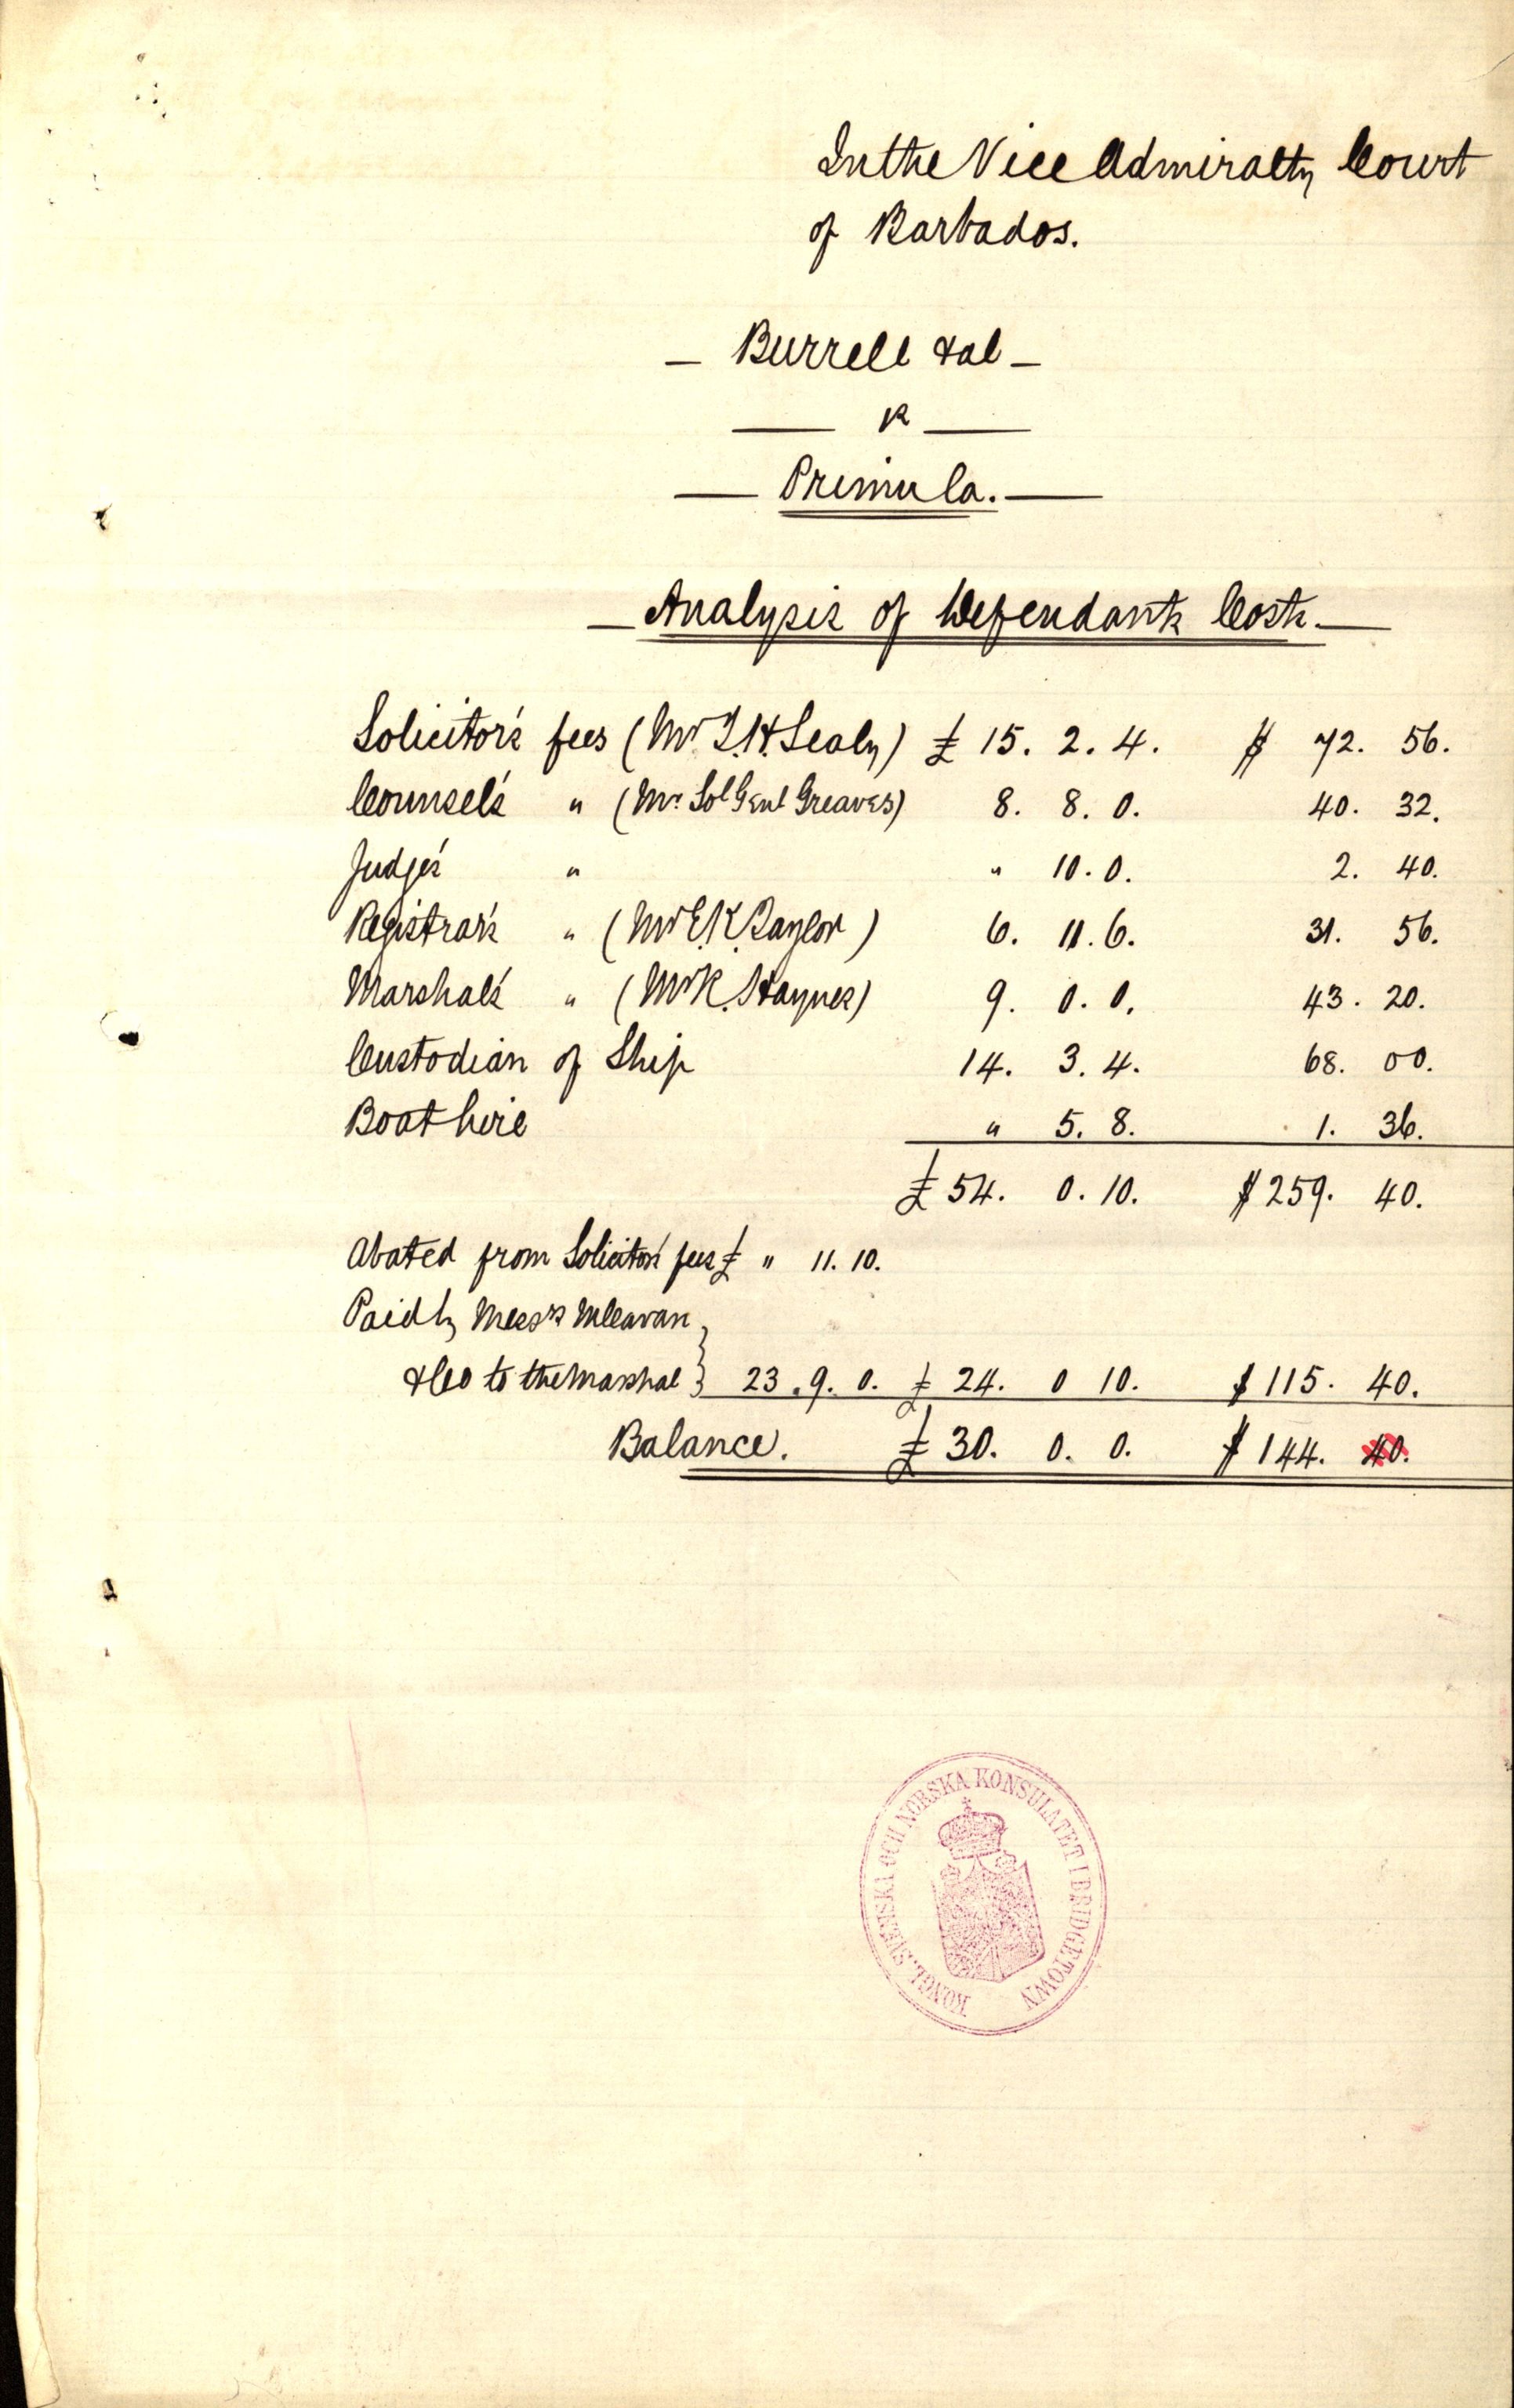 In the Vice Admiralty Court
of Barbados.
— Burrell & al —
— vs —
— Primula. —
— Analysis of Defendants Costs. —
Solicitor's fees (Mr T.H. Sealy) £ 15. 2. 4. $ 72. 56.
Counsel's " (Mr. Sol Genl Greaves) 8. 8. 0. 40. 32.
Judge's " " 10. 0. 2. 40.
Registrar's " (Mr E.K. Taylor) 6. 11. 6. 31. 56.
Marshal's " (Mr R. Haynes) 9. 0. 0. 43. 20.
Custodian of Ship 14. 3. 4. 68. 00.
Boat hire " 5. 8. 1. 36.
£ 54. 0. 10. $ 259. 40.
Abated from Solicitors fees £ " 11. 10.
Paid by Messrs
& Co to the Marshal } 23. 9. 0. £ 24. 0 10. $ 115. 40.
Balance. £ 30. 0. 0. $ 144. 40.
KONGL. SVENSKA OCH NORSKA KONSULATET I BRIDGETOWN